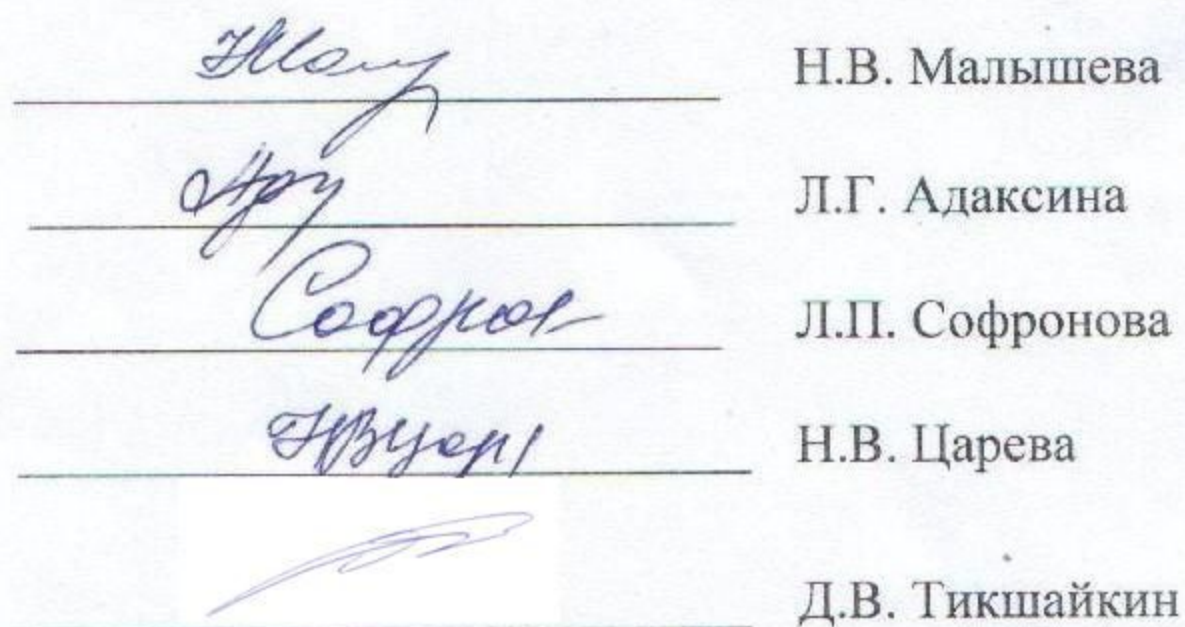 Н.В. Малышева
Л.Г. Адаксина
Софрон Л.П. Софронова
НВЦар Н.В. Царева
Д.В. Тикшайкин